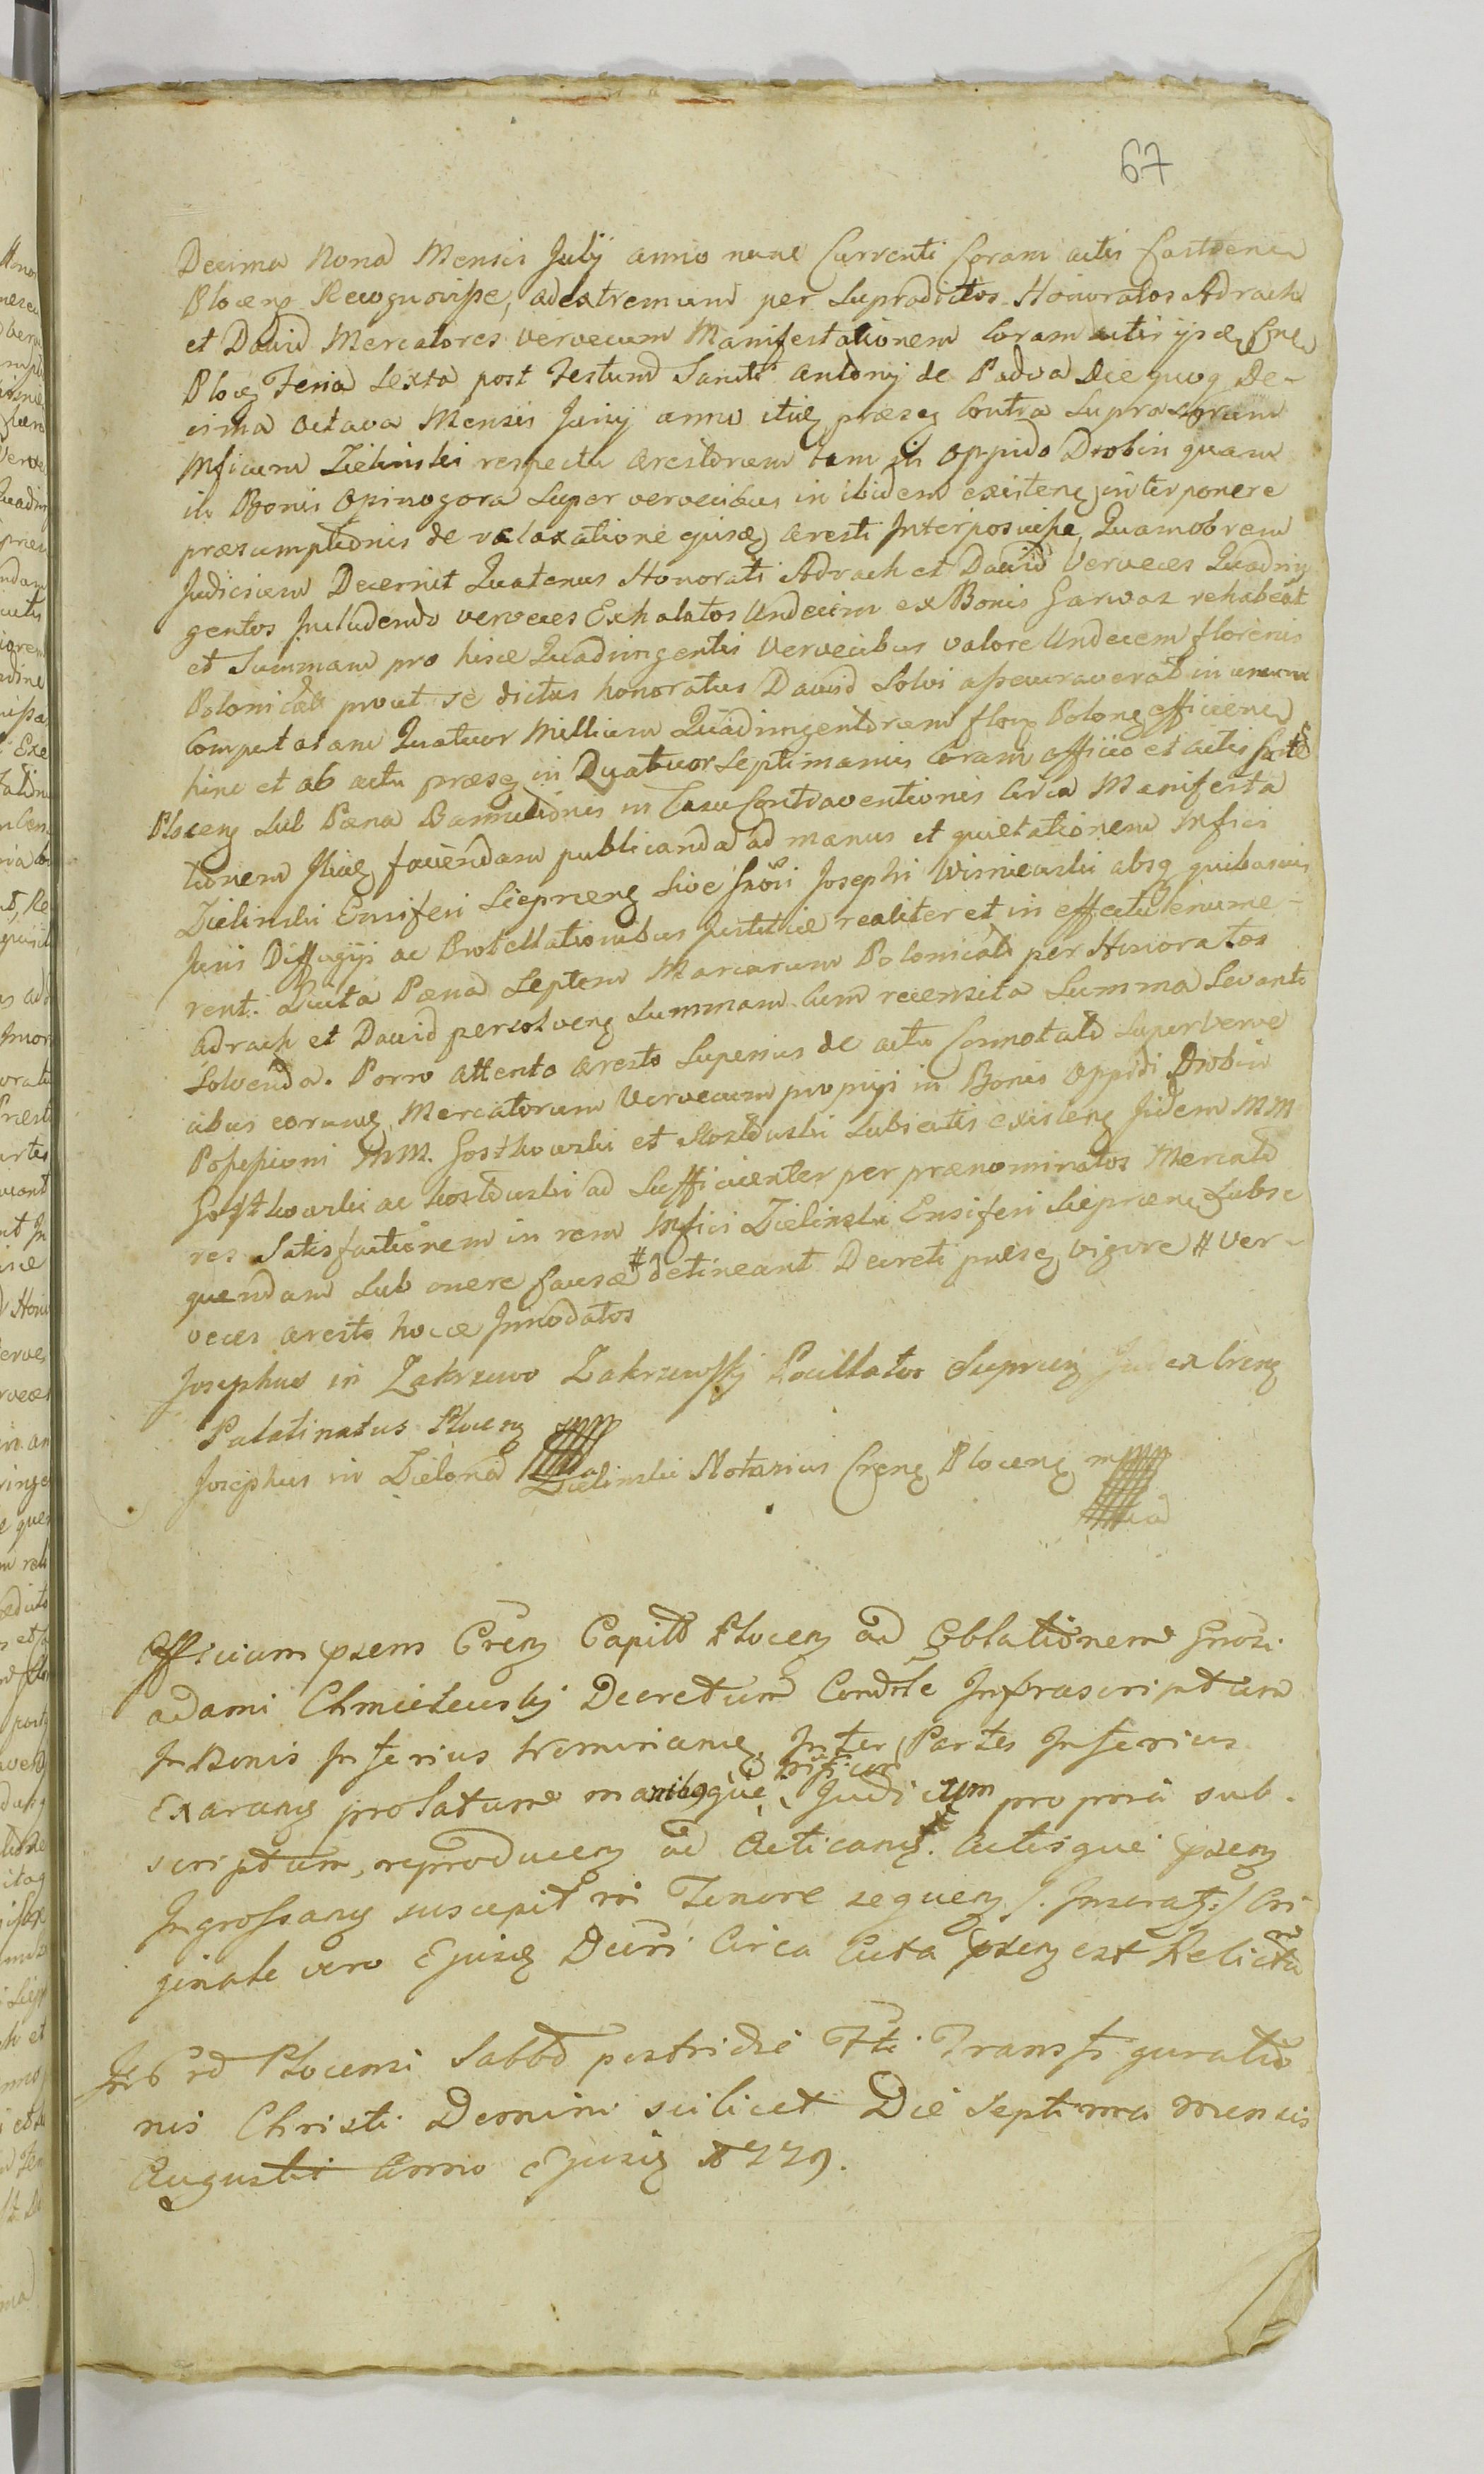 67
Decima Nona Mensis Julij anno nunc Currenti Coram actis Castren
Plocen Recognovisse, ad extremum per Supradictos Honoratos Adrach
et David Mercatores vervecum Manifestationem Coram actis ijsdem
Ploc Feria Sexta post Festum Sancti Antonij de Padva Die quoq De-
cima octava Mensis Junij anno itid præs Contra Supra
Mficum Zielinski respectu arestorum tam in Oppido Drobin quam
in Bonis Opinogora Super vervecibus in ibidem existen interponere
præsumptionis de relaxatione ejusd aresti Interposuisse, Quamobrem
Judicium Decernit Quatenus Honorati Adrach et David Verveces Quadrin
gentos Includendo verveces Exhalatos Undecim ex Bonis Garwaz rehabeat
et Summam pro hisce Quadringentis Vervecibus valore Undecem florenis
Polonical prout se dictus honoratus David Solvi assecuraverat in unum
Computatam Quatuor Millium Quadringentorum flor Polon efficien
hinc et ab actu præs in Quatuor Septimanis Coram officio et actis Castr
Plocen Sub Pæna Bannitionis in Casu Contraventionis Circa Manifesta
tionem faciendam publicanda ad manus et quietationem Mfici
Zielinski Ensiferi Sieprcen Sive Josephi Wisniewski absq quibasvis
Juris Diffugijs ac Protellationibus Justitiæ realiter et in effectu enume-
rent. Lucta Pæna Septem Marcarum Polonical per Honoratos
Adrach et David persolven Summam Cum recensita Summa Levanti
Solvenda. Porro attento aresto Superius de actu Connotato Super verve
cibus eorund Mercatorum Vervecum proprijs in Bonis Oppidi Drobin
Possessioni MM. Gostkowski et Subjectis existen Iidem MM
Gostkowski ac ad Sufficienter per prænominatos Mercato
res Satisfactionem in rem Mfici Zielinski Ensiferi Sieprcen Subse
quendam Sub onere Causæ # detineant Decreti præse vigore # Ver-
veces aresto hocce Innodatos
Josephus in Zakrzewo Zakrzewskj Pocillator Sieprcen Judex Cren
Palatinatus Plocen
Josephus in Zielona Zielinski Notarius Cren Plocen
Officium præns Cren Capitl Plocen ad Oblationem Gnosi
Adami Chmielewskj Decretum Condcte Infrascriptum
In Bonis Inferius Nominan Inter Partes Inferius
Exaran prolatum manibusque Mficum Judicum propria sub-
scriptum, reproducen ad Acticand. Actisque præn
Ingrossan suscepit in Tenore sequen /. Inserat: / Ori
ginale vero Ejusd Decri Circa Acta præn est Relictum
In Plocensi Sabbo postridie Fti Transfiguratio
nis Christi Domini scilicet Die Septima mensis
Augusti Anno Ejusd 1779.